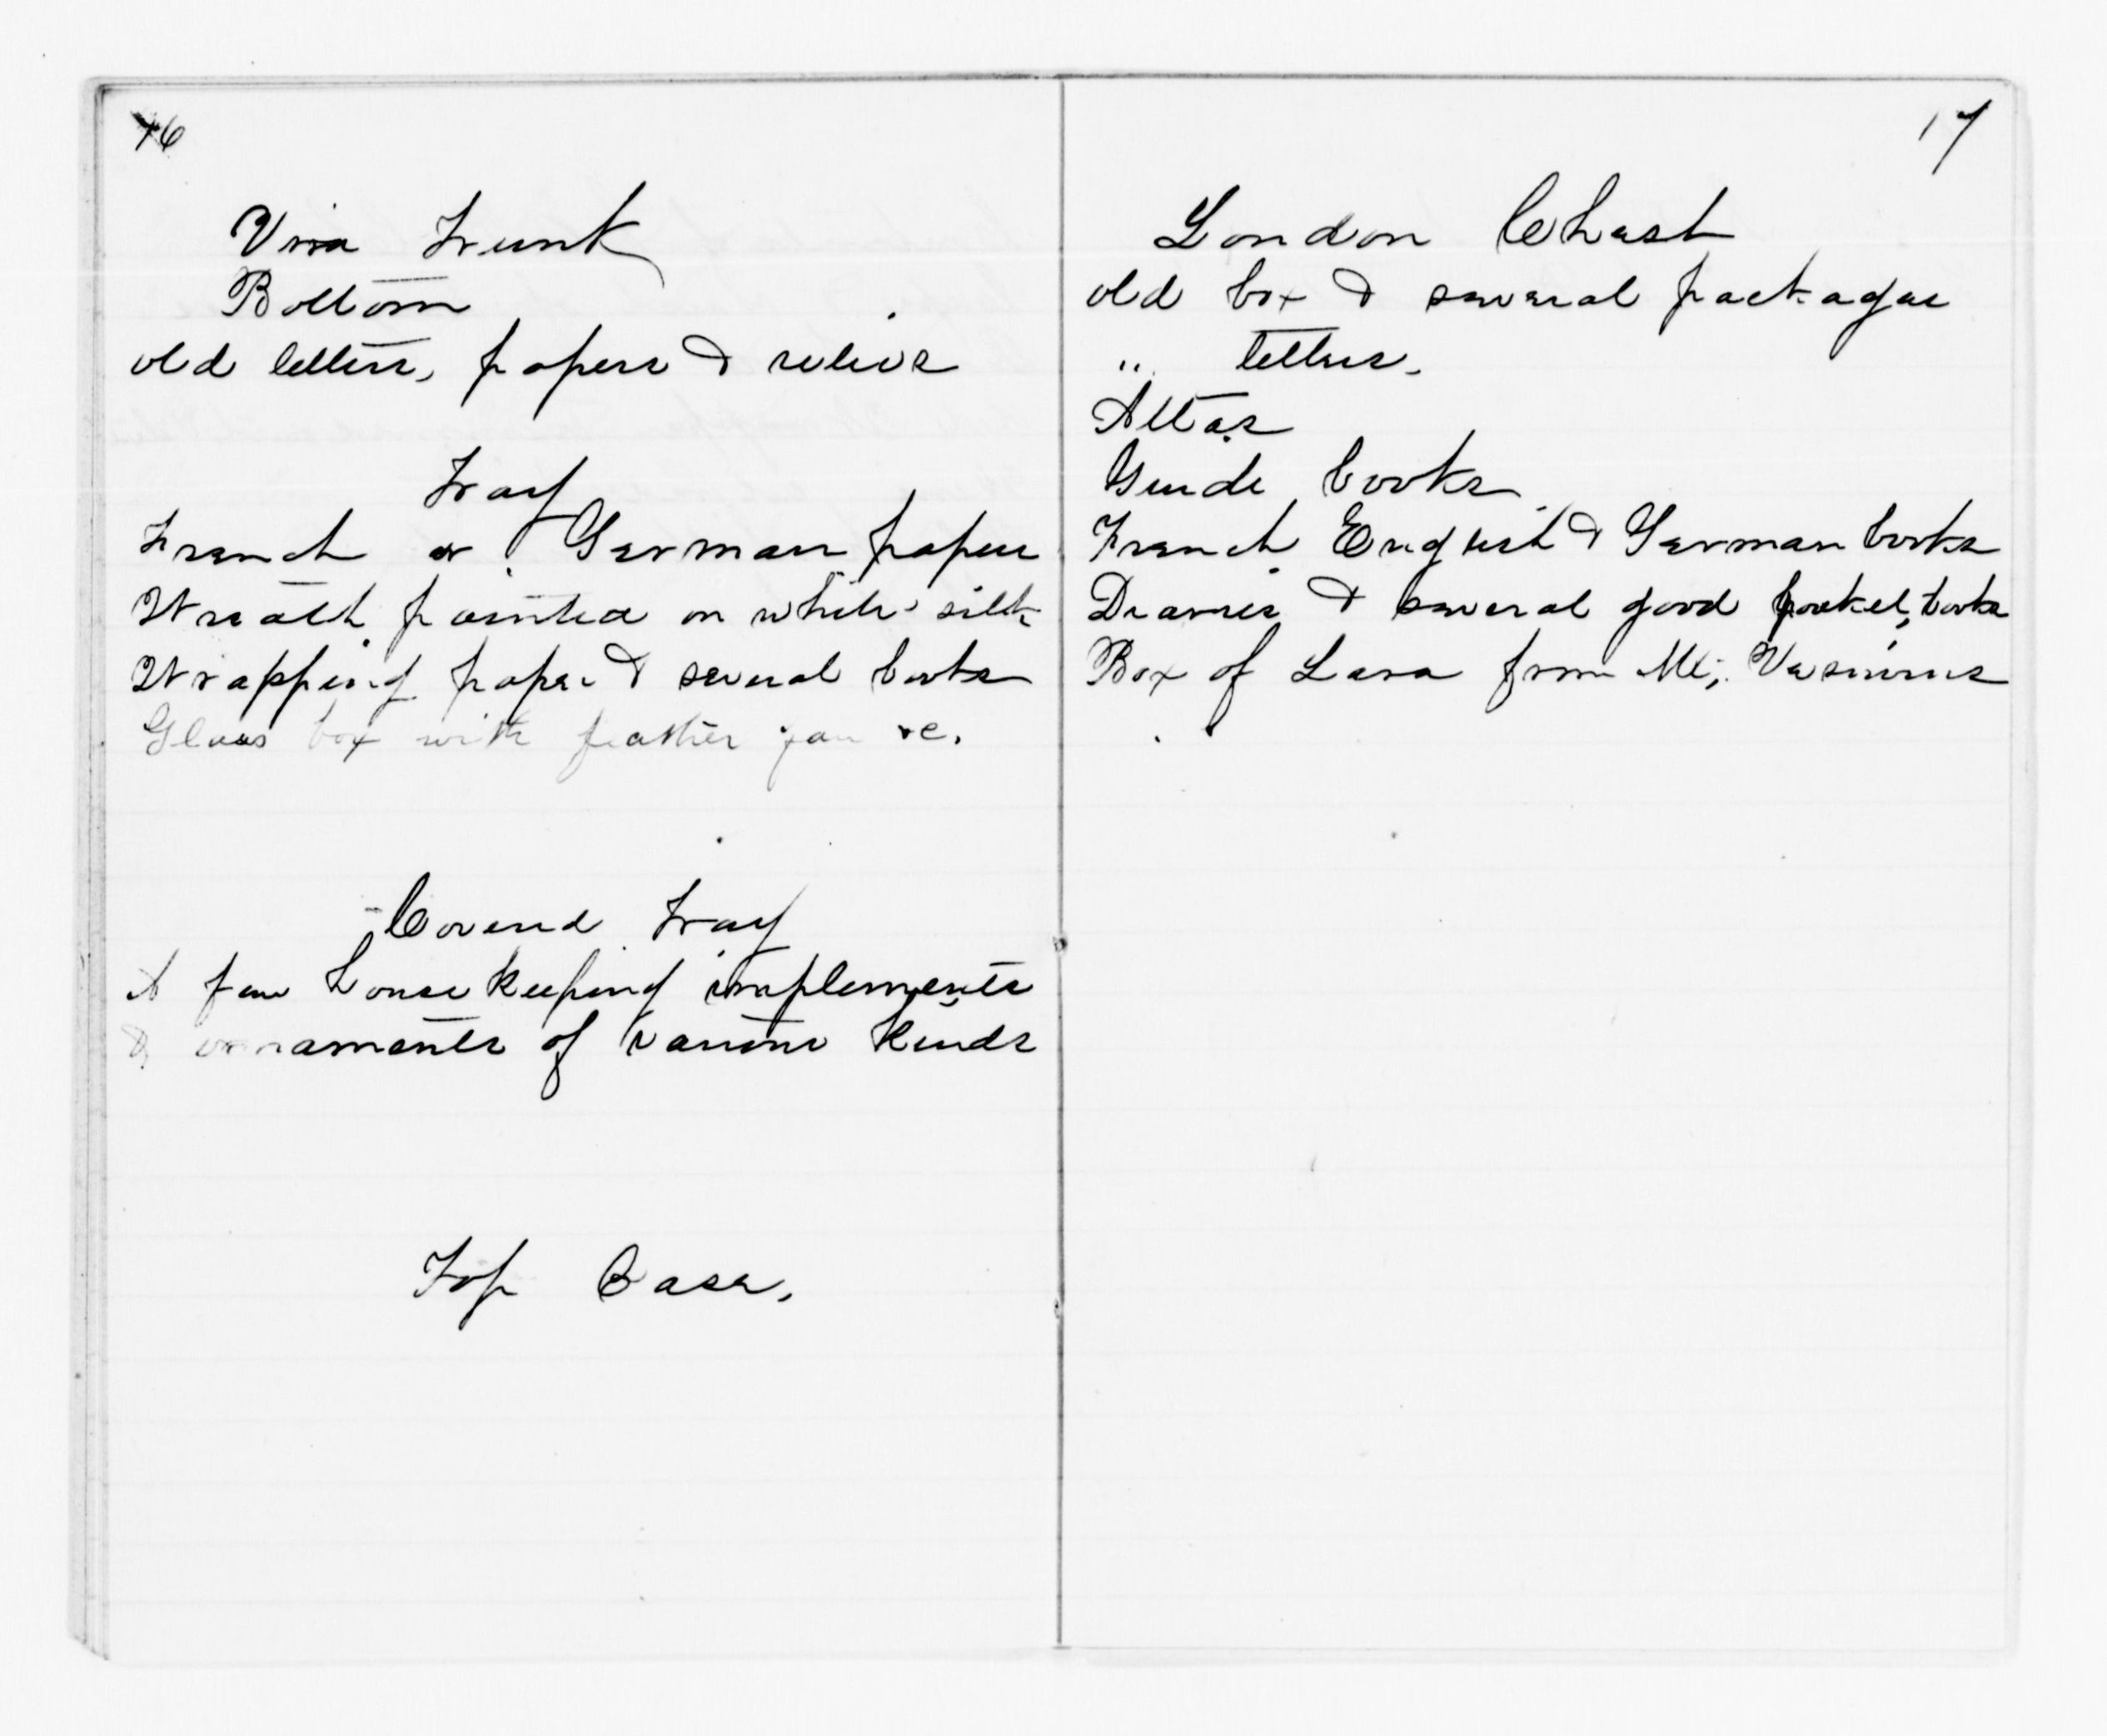 16
Trunk
Bottom
old letters, papers & relics
Tray
French & German papers
Wreath painted on white silk
Wrapping paper & several books
Glass box with feather fan &c.
Covered Tray
A few housekeeping implements
& ornaments of various kinds
Top Case.
17
London Chest
old box & several packages
" letters.
Atlas
Guide books
French English & German books
Diaries & several good pocket books
Box of Lava from Mt. Vesuvius